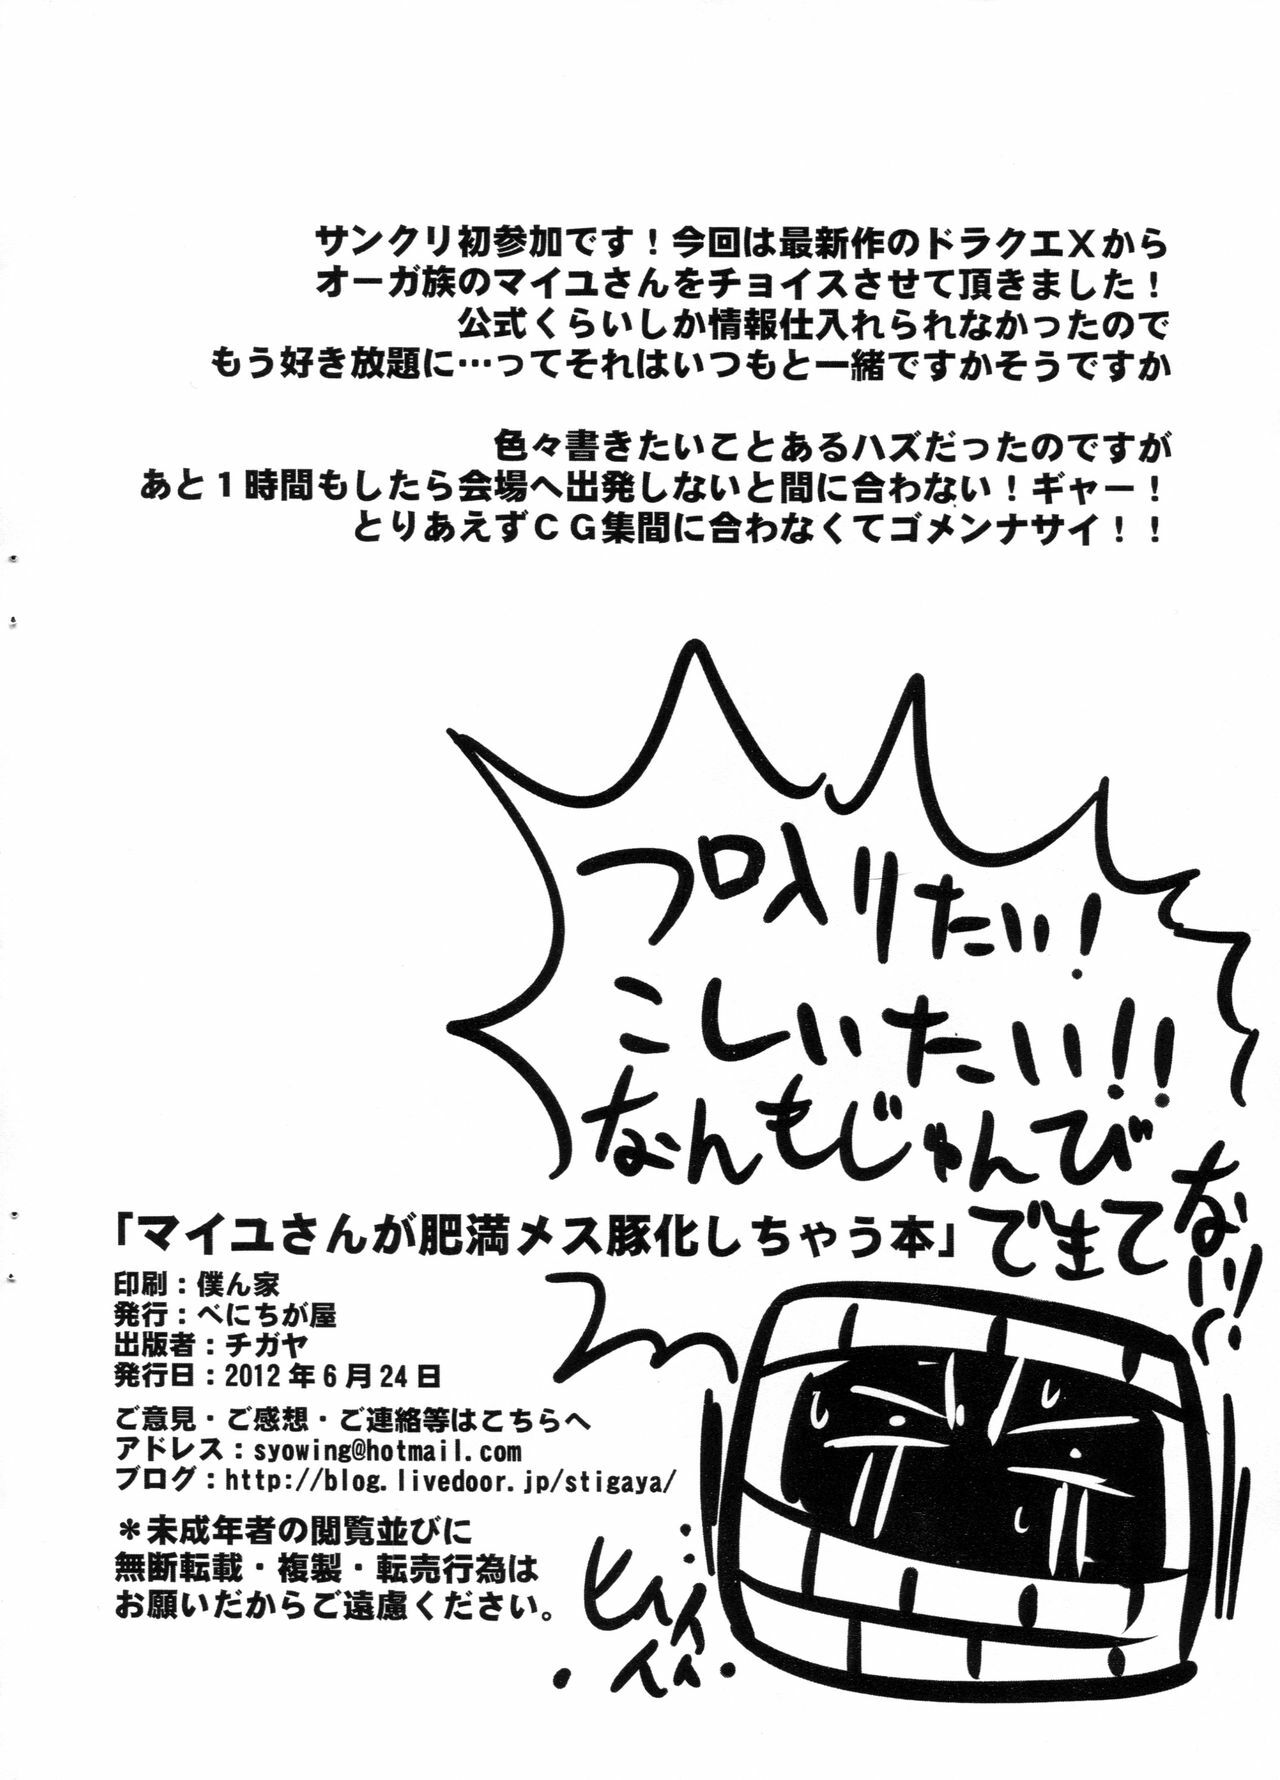 サンクリ初参加です！今回は最新作のドラクエＸから
オーガ族のマイユさんをチョイスさせて頂きました！
公式くらいしか情報仕入れられなかったので
もう好き放題に…ってそれはいつもと一緒ですかそうですか
色々書きたいことあるハズだったのですが
あと１時間もしたら会場へ出発しないと間に合わない！ギャー！
とりあえずＣＧ集間に合わなくてゴメンナサイ！！
フロ入りたい！
こしいたい！！
なんもじゅんび
できて
ない！！
「マイユさんが肥満メス豚化しちゃう本」
印刷：僕ん家
発行：べにちが屋
出版者：チガヤ
発行日：2012年6月24日
ご意見・ご感想・ご連絡等はこちらへ
アドレス：syowing@hotmail.com
ブログ：http://blog.livedoor.jp/stigaya/
＊未成年者の閲覧並びに
無断転載・複製・転売行為は
お願いだからご遠慮ください。
ヒィィ